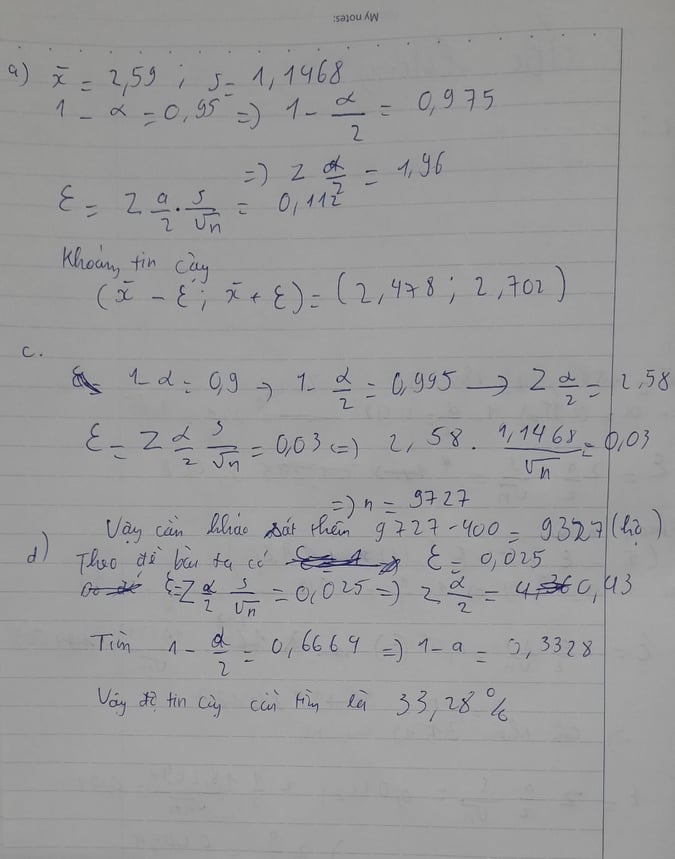 My notes:
a) x̄ = 2,59 ; s = 1,1468
1 - α = 0,95 => 1 - α/2 = 0,975
=> Z α/2 = 1,96
ε = Z a/2 . s/√n = 0,112
Khoảng tin cậy
(x̄ - ε ; x̄ + ε) = (2,478 ; 2,702)
c.
1-α = 0,9 → 1- α/2 = 0,995 → Z α/2 = 2,58
ε = Z α/2 s/√n = 0,03 => 2,58 . 1,1468/√n = 0,03
=> n = 9727
Vậy cần khảo sát thêm 9727-400 = 9327 (hộ)
d) Theo đề bài ta có ε = 0,025
ε = Z α/2 s/√n = 0,025 => Z α/2 = 0,43
Tìm 1 - α/2 = 0,6664 => 1-a = 0,3328
Vậy độ tin cậy cần tìm là 33,28%